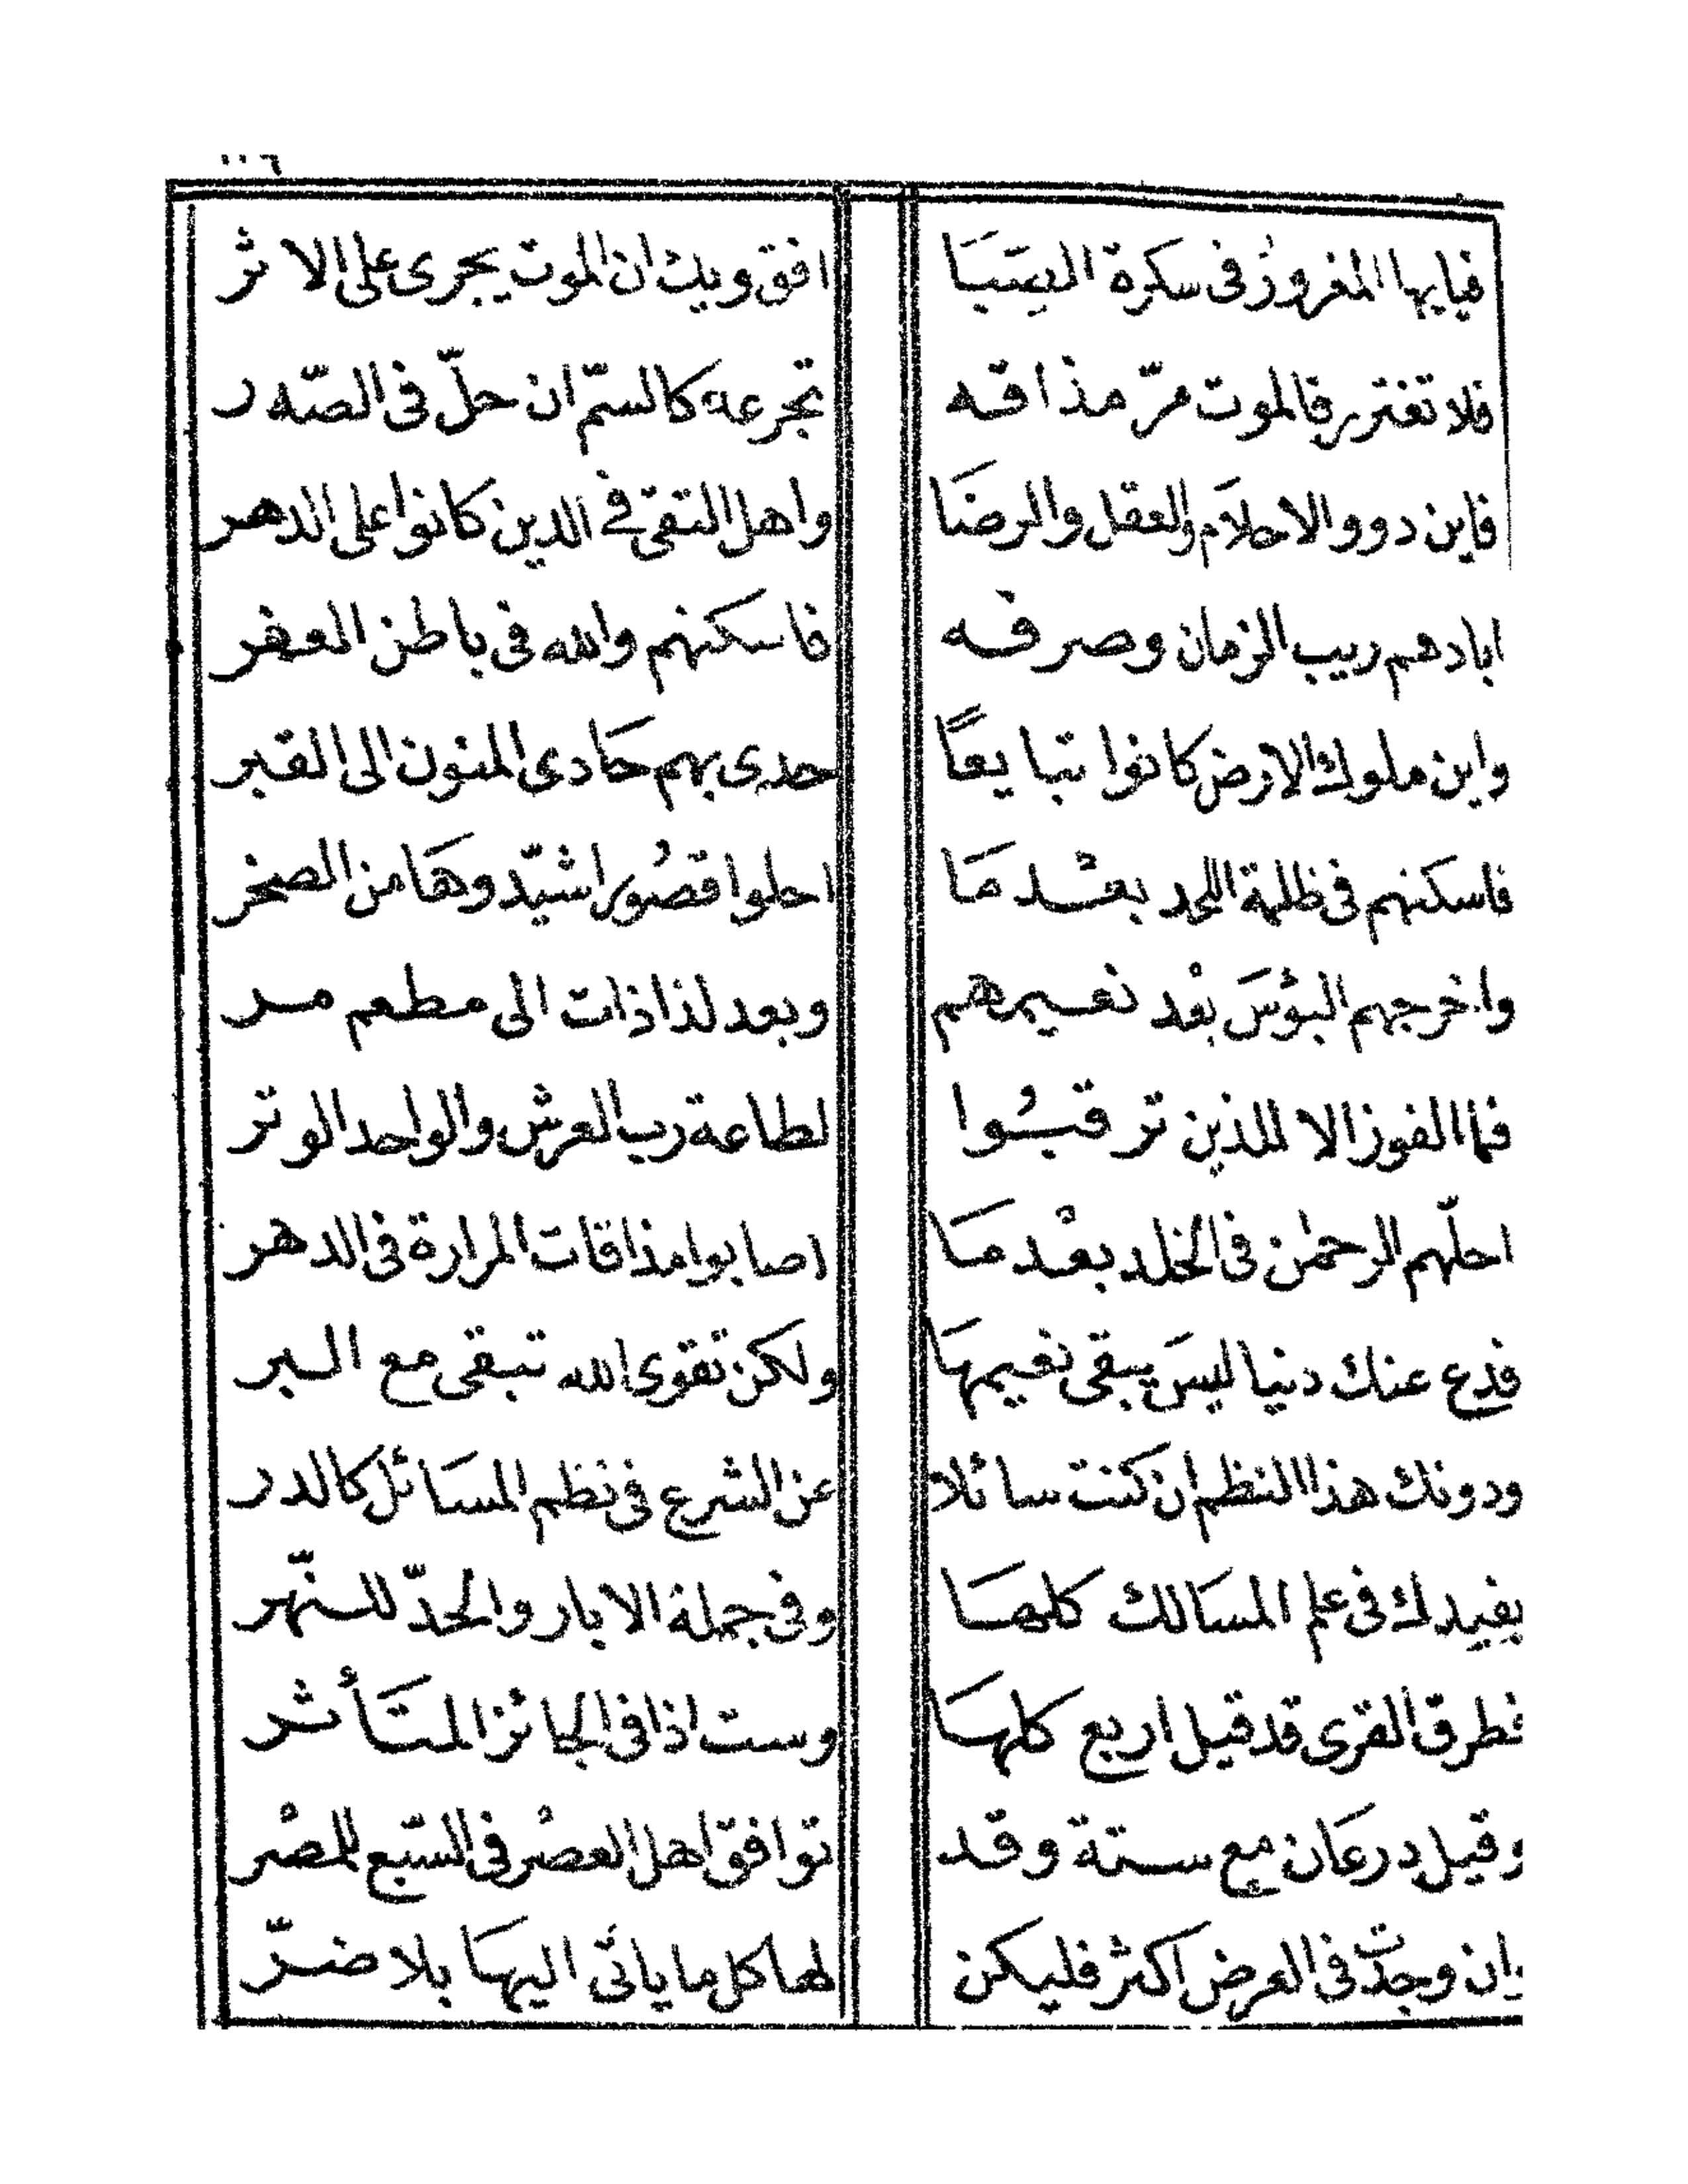 فيايها المغرور فى سكرة الصبَا افق ويك ان الموت يجرى على الاثر
فلا تغترر فالموت مرّ مذاقه تجرعه كالسمّ ان حلّ فى الصّدر
فاين دوو الاحلام والعقل والرضَا واهل التقى فى الدين كانوا على الدهر
ابادهم ريب الزمان وصرفه فاسكنهم والله فى باطن العفر
واين ملوك الارض كانوا تبايعًا حدى بهم حَادى المنون الى القبر
فاسكنهم فى ظلمة اللحد بعْد مَا احلوا قصُورا شيّدوهَا من الصخر
واخرجهم البؤسَ بعْد نعيمهم وبعد لذاذات الى مطعم مر
فما الفوز الا للذين ترقبُوا لطاعة رب العرش والواحد الوتر
احلّهم الرحمٰن فى الخلد بعْد مَا اصابوا مذاقات المرارة فى الدهر
فدع عنك دنيا ليسَ يبقى نعيمهَا ولكن تقوى الله تبقى مع البر
ودونك هذا النظم ان كنت سائلا عن الشرع فى نظم المسَائل كالدر
يفيدك فى علم المسَالك كلهَا وفى جملة الابار والحدّ للنّهر
فطرق القرى قد قيل اربع كلهَا وست اذا فى الجائز المتَأثر
وقيل درعَان مع ستة وقد توافق اهل العصْر فى السّبع للمصْر
وان وجدّت فى العرض اكثر فليكن لها كل ما يأتى اليهَا بلا ضرّ